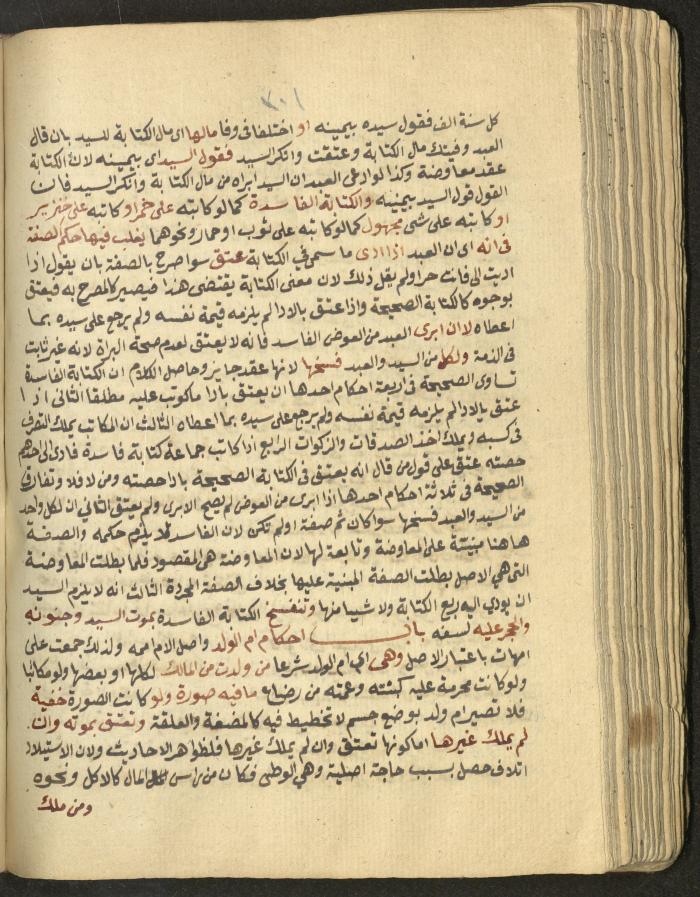 ٣٠١
كل سنة الف فقول سيده بيمينه او اختلفا فى وفا مالها اى مال الكتابة للسيد بان قال
العبد وفيتك مال الكتابة وعتقت وانكر السيد فقول السيد اى بيمينه لان الكتابة
عقد معاوضة وكذا لو ادعى العبد ان السيد ابراه من مال الكتابة وانكر السيد فان
القول قول السيد بيمينه والكتابة الفاسدة كما لو كاتبه على خمر او كاتبه على خنزير
او كاتبه على شى مجهول كما لو كاتبه على ثوب او حمار ونحوهما يغلب فيها حكم الصفة
فى انه اى ان العبد اذا ادى ما سمى فى الكتابة عتق سوا صرح بالصفة بان يقول اذا
اديت الى فانت حر او لم يقل ذلك لان معنى الكتابة يقتضى هذا فيصير كالمصرح به فيعتق
بوجوه كالكتابة الصحيحة واذا عتق بالادا لم يلزمه قيمة نفسه ولم يرجع على سيده بما
اعطاه لا ان ابرى العبد من العوض الفاسد فانه لا يعتق لعدم صحة البراة لانه غير ثابت
فى الذمة ولكل من السيد والعبد فسخها لانها عقد جايز وحاصل الكلام ان الكتابة الفاسدة
تساوى الصحيحة فى اربعة احكام احدها ان يعتق بادا ما كوتب عليه مطلقا الثانى اذا
عتق بالادا لم يلزمه قيمة نفسه ولم يرجع على سيده بما اعطاه الثالث ان المكاتب يملك التصرف
فى كسبه ويملك اخذ الصدقات والزكوات الرابع اذا كاتب جماعة كتابة فاسدة فادى احدهم
حصته عتق على قول من قال انه يعتق فى الكتابة الصحيحة بادا حصته ومن لا فلا وتفارق
الصحيحة فى ثلاثة احكام احدها اذا ابرى من العوض لم يصح الابرى ولم يعتق الثانى ان لكل واحد
من السيد والعبد فسخها سوا كان ثم صفة اولم تكن لان الفاسد لا يلزم حكمه والصفة
هاهنا مبنية على المعاوضة وتابعة لها لان المعاوضة هى المقصود فلما بطلت المعاوضة
التى هى الاصل بطلت الصفة المبنية عليها بخلاف الصفة المجردة الثالث انه لا يلزم السيد
ان يودي اليه ربع الكتابة ولا شيا منها وتنفسخ الكتابة الفاسدة بموت السيد وجنونه
والحجر عليه لسفه باب احكام ام الولد واصل الام امهة ولذلك جمعت على
امهات باعتبار الاصل وهى اى ام الولد شرعا من ولدت من المالك لكلها او بعضها ولو مكاتبا
ولو كانت محرمة عليه كبنته وعمته من رضاع ما فيه صورة ولو كانت الصورة خفية
فلا تصير ام ولد بوضع جسم لا تخطيط فيه كالمضغة والعلقة وتعتق بموته وان
لم يملك غيرها اما كونها تعتق وان لم يملك غيرها فلظواهر الاحاديث ولان الاستيلاد
اتلاف حصل بسبب حاجة اصلية وهى الوطى فكان من راس المال كالاكل ونحوه
ومن ملك